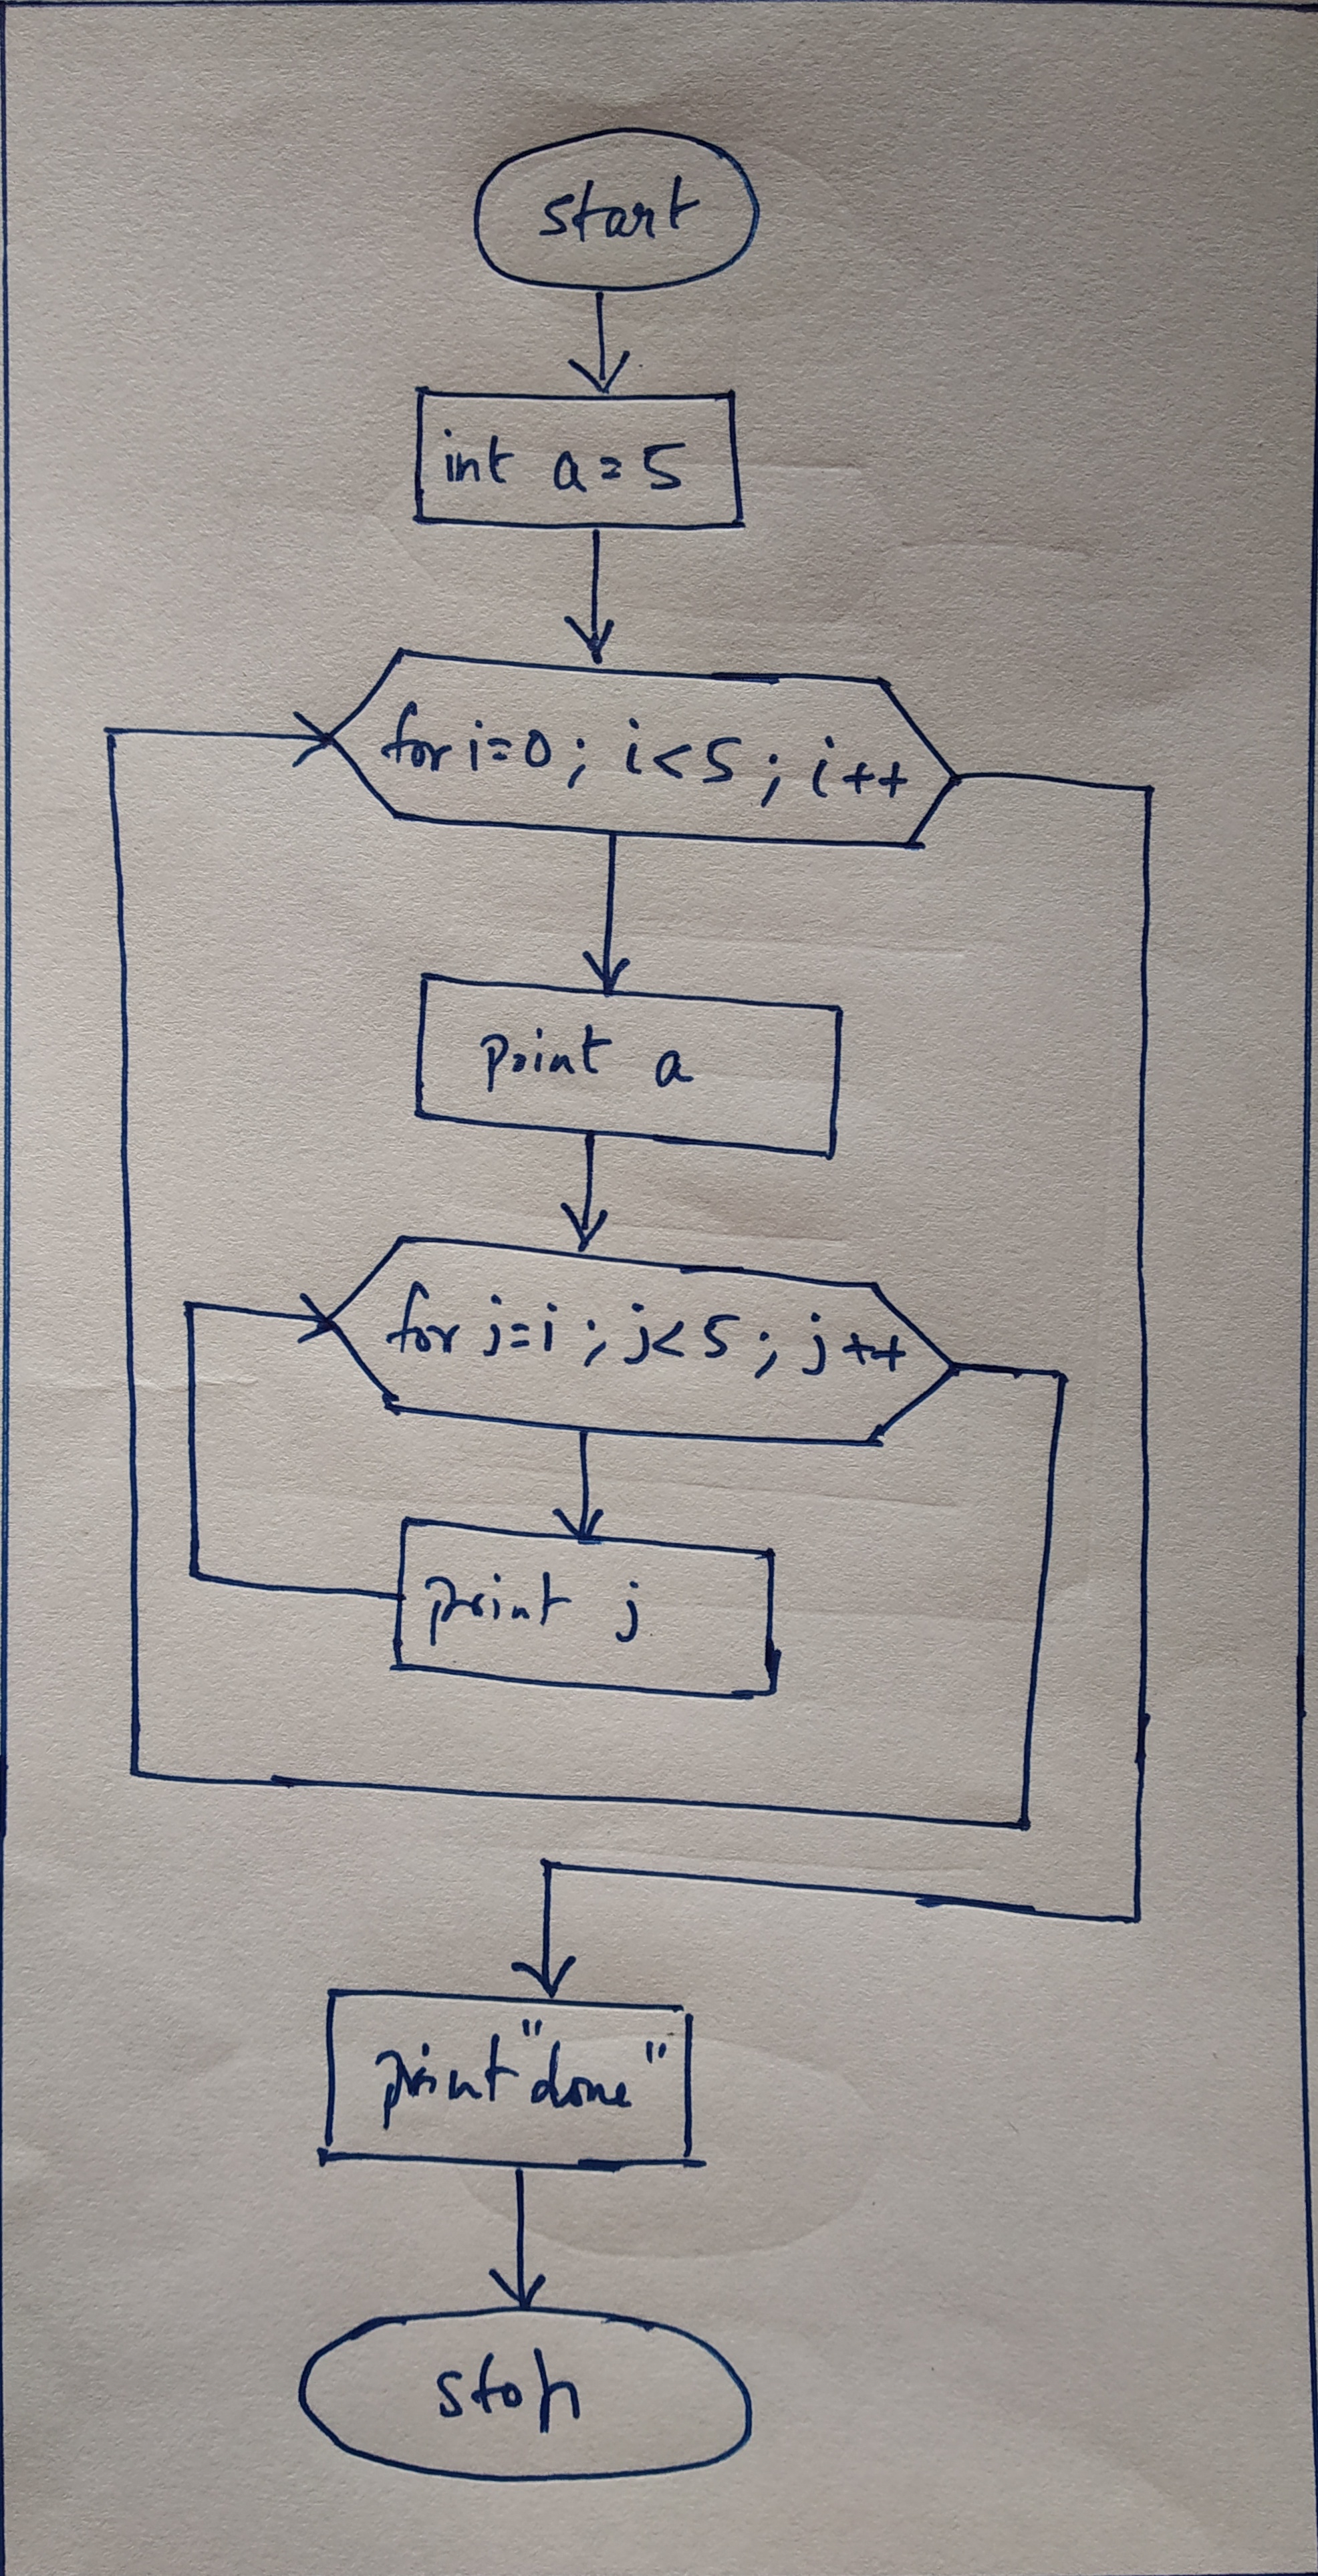 start
int a=5
for i=0; i<5; i++
print a
for j=i; j<5; j++
print j
print "done"
stop